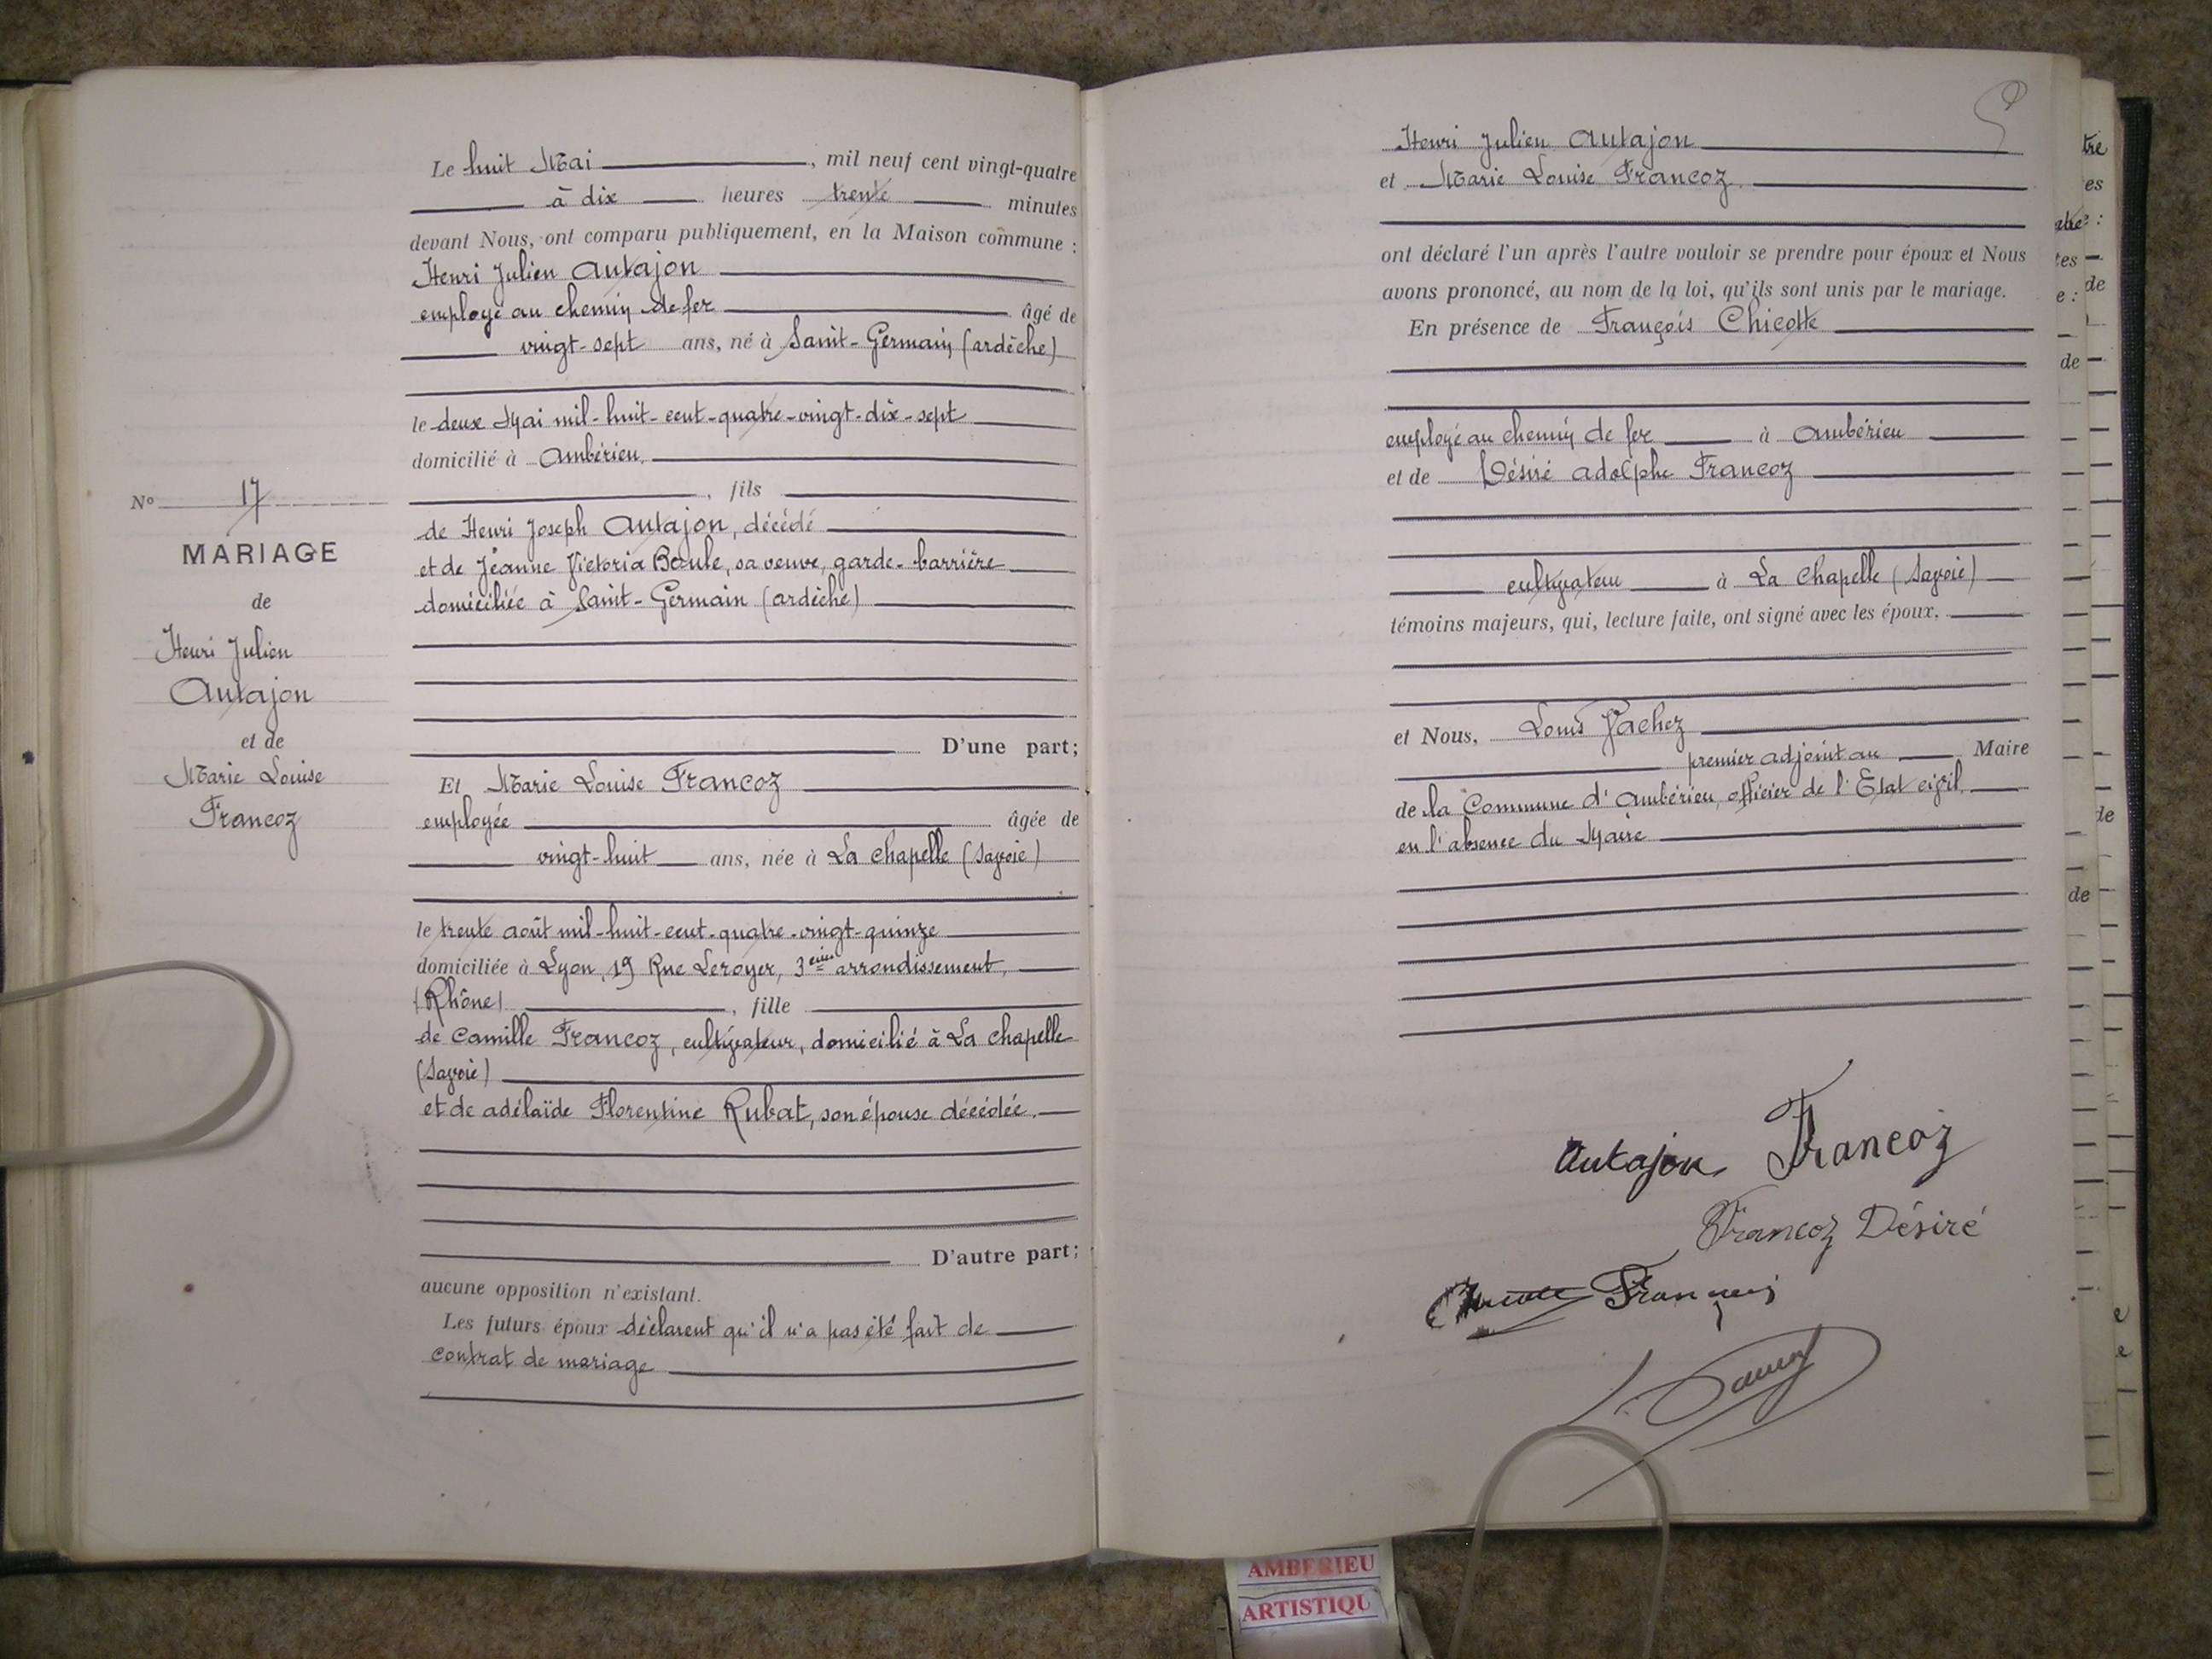 Le huit Mai, mil neuf cent vingt-quatre
à dix heures trente minutes
devant Nous, ont comparu publiquement, en la Maison commune :
Henri Julien Autajon
employé au chemin de fer âgé de
vingt-sept ans, né à Saint-Germain (ardèche)
le deux Mai mil-huit-cent-quatre-vingt-dix-sept
domicilié à Ambérieu
, fils
de Henri Joseph Autajon, décédé
et de Jeanne Victoria Boule, sa veuve, garde-barrière
domiciliée à Saint-Germain (ardèche)
D'une part;
Et Marie Louise Francoz
employée âgée de
vingt-huit ans, née à La Chapelle (Savoie)
le trente août mil-huit-cent-quatre-vingt-quinze
domiciliée à Lyon, 19 Rue Leroyer, 3ème arrondissement,
(Rhône), fille
de Camille Francoz, cultivateur, domicilié à La Chapelle
(Savoie)
et de adélaïde Florentine Rubat, son épouse décédée.
D'autre part;
aucune opposition n'existant.
Les futurs époux déclarent qu'il n'a pas été fait de
contrat de mariage
N° 17
MARIAGE
de
Henri Julien
Autajon
et de
Marie Louise
Francoz
Henri Julien Autajon
et Marie Louise Francoz
ont déclaré l'un après l'autre vouloir se prendre pour époux et Nous
avons prononcé, au nom de la loi, qu'ils sont unis par le mariage.
En présence de François Chicotte
employé au chemin de fer à Ambérieu
et de Désiré adolphe Francoz
cultivateur à La Chapelle (Savoie)
témoins majeurs, qui, lecture faite, ont signé avec les époux.
et Nous, Louis Vachez
premier adjoint au Maire
de la Commune d'Ambérieu, officier de l'Etat civil
en l'absence du Maire
Autajon Francoz
Francoz Désiré
François
AMBERIEU
ARTISTIQU